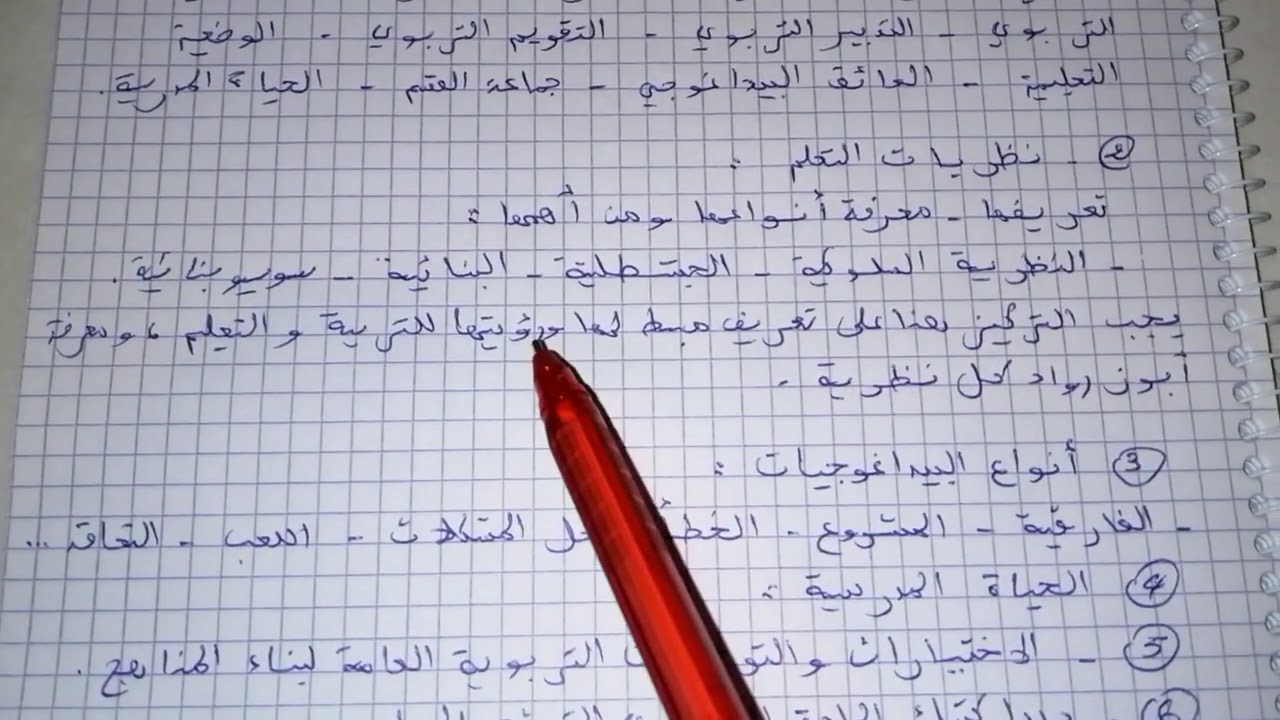 التربوي - التدبير التربوي - التقويم التربوي - الوضعية
التعلمية - العائق البيداغوجي - جماعة القسم - الحياة المدرسية.
2 - نظريات التعلم :
تعريفها - معرفة أنواعها ومن أهمها :
- النظرية السلوكية - الجشطلتية - البنائية - سوسيوبنائية.
يجب التركيز هنا على تعريف مبسط لها ورؤيتها للتربية و التعليم ، ومعرفة
أبرز رواد كل نظرية .
3 أنواع البيداغوجيات :
- الفارقية - المشروع - الخطأ حل المشكلات - اللعب - التعاقد ...
4 الحياة المدرسية :
5 - الاختيارات التربوية العامة لبناء المناهج .
6